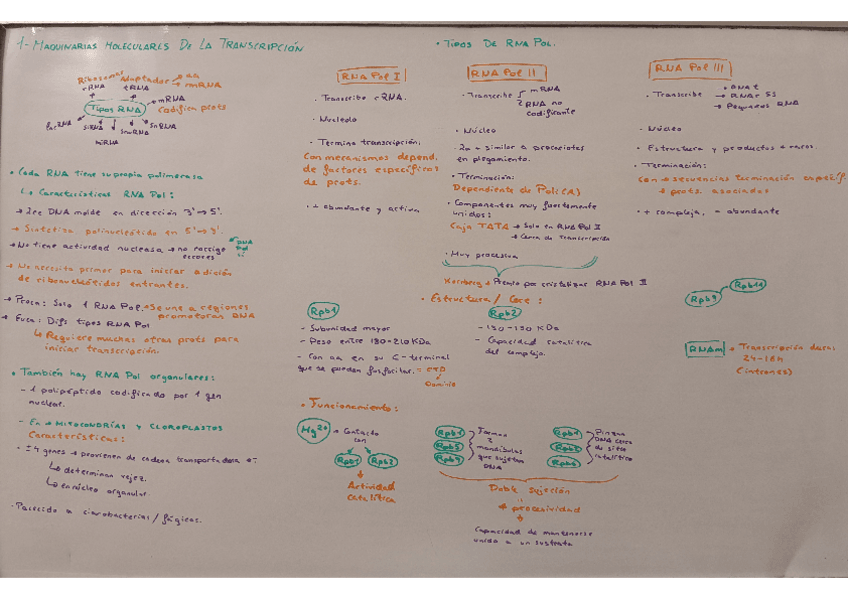 1- MAQUINARIAS MOLECULARES DE LA TRANSCRIPCIÓN
Ribosomal
rRNA
Adaptador → aa
→ mRNA
tRNA
Tipos RNA
→ mRNA
Codifica prots
SnRNA
SnoRNA
SiRNA
miRNA
• Cada RNA tiene su propia polimerasa
↳ Características RNA Pol:
→ Lee DNA molde en dirección 3'→5'.
→ Sintetiza polinucleótido en 5'→3'.
→ No tiene actividad nucleasa → no corrige
errores
DNA
Pol
sí
→ No necesita primer para iniciar adición
de ribonucleótidos entrantes.
→ Proca: Solo 1 RNA Pol. → Se une a regiones
promotoras DNA
→ Euca: Difs tipos RNA Pol
↳ Requiere muchas otras prots para
iniciar transcripción.
• También hay RNA Pol organulares:
- 1 polipéptido codificado por 1 gen
nuclear.
- En → MITOCONDRIAS Y CLOROPLASTOS
Características:
genes → provienen de cadena transportadora e-
↳ determinan vejez.
↳ en núcleo organular.
· Parecido a cianobacterias / fágicas.
• TIPOS DE RNA POL.
RNA Pol I
· Transcribe rRNA.
· Nucleolo
· Termina transcripción,
Con mecanismos depend.
de factores específicos
de prots.
· + abundante y activa
RNA Pol II
· Transcribe
mRNA
RNA no
codificante
· Núcleo
· 2a + similar a procariotas
en plegamiento.
· Terminación:
Dependiente de Poli(A)
· Componentes muy fuertemente
unidos:
Caja TATA → Solo en RNA Pol II
→ Cerca de Transcripción
· Muy procesiva
Kornberg → Premio por cristalizar RNA Pol II
RNA Pol III
· Transcribe
→ RNA t
→ RNAr 5S
→ Pequeños RNA
· Núcleo
· Estructura y productos + raros.
· Terminación:
Con → secuencias terminación específ.
→ prots. asociadas
· + compleja, - abundante
• Estructura / Core:
Rpb1
- Subunidad mayor
- Peso entre 180-210 KDa
- Con aa en su C-terminal
que se pueden fosforilar. = CTD
Dominio
Rpb2
- 130-150 KDa
- Capacidad catalítica
del complejo.
Rpb9
Rpb11
RNAm
• Transcripción dura:
24-16h
(intrones)
• Funcionamiento:
Mg2+ → Contacto
con
Rpb1
Rpb2
Actividad
catalítica
Rpb1
Rpb5
Rpb9
Forman
2
mandíbulas
que sujetan
DNA
Rpb1
Rpb2
Rpb6
Pinza
DNA cerca
de sitio
catalítico
Doble sujeción
=
+ procesividad
Capacidad de mantenerse
unida a un sustrato